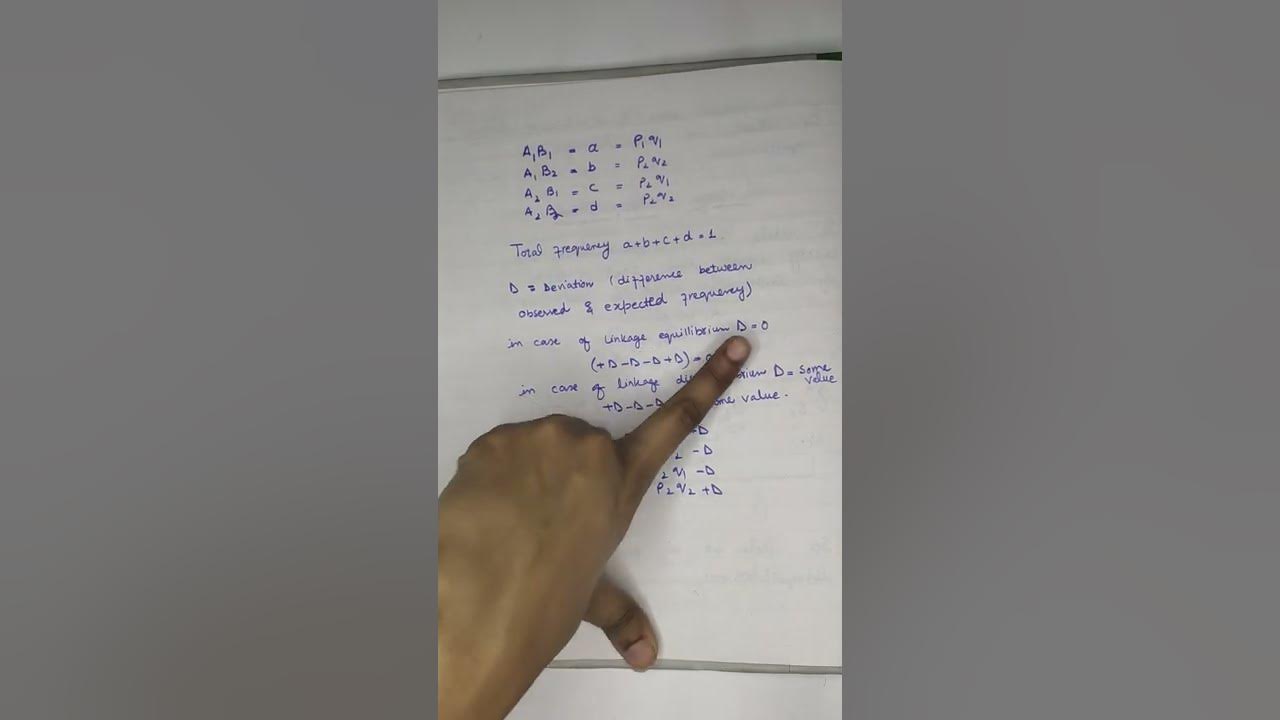 A₁B₁ = a = P₁q₁
A₁B₂ = b = P₂q₂
A₂B₁ = c = P₂q₁
A₂B₂ = d = P₂q₂
Total frequency a+b+c+d = 1
D = Deviation (difference between
observed & expected frequency)
in case of linkage equillibrium D = 0
(+D-D-D+D) =
in case of linkage D = some
value
+D-D-D value.
-D
₂ -D
₂q₁ -D
P₂q₂ +D